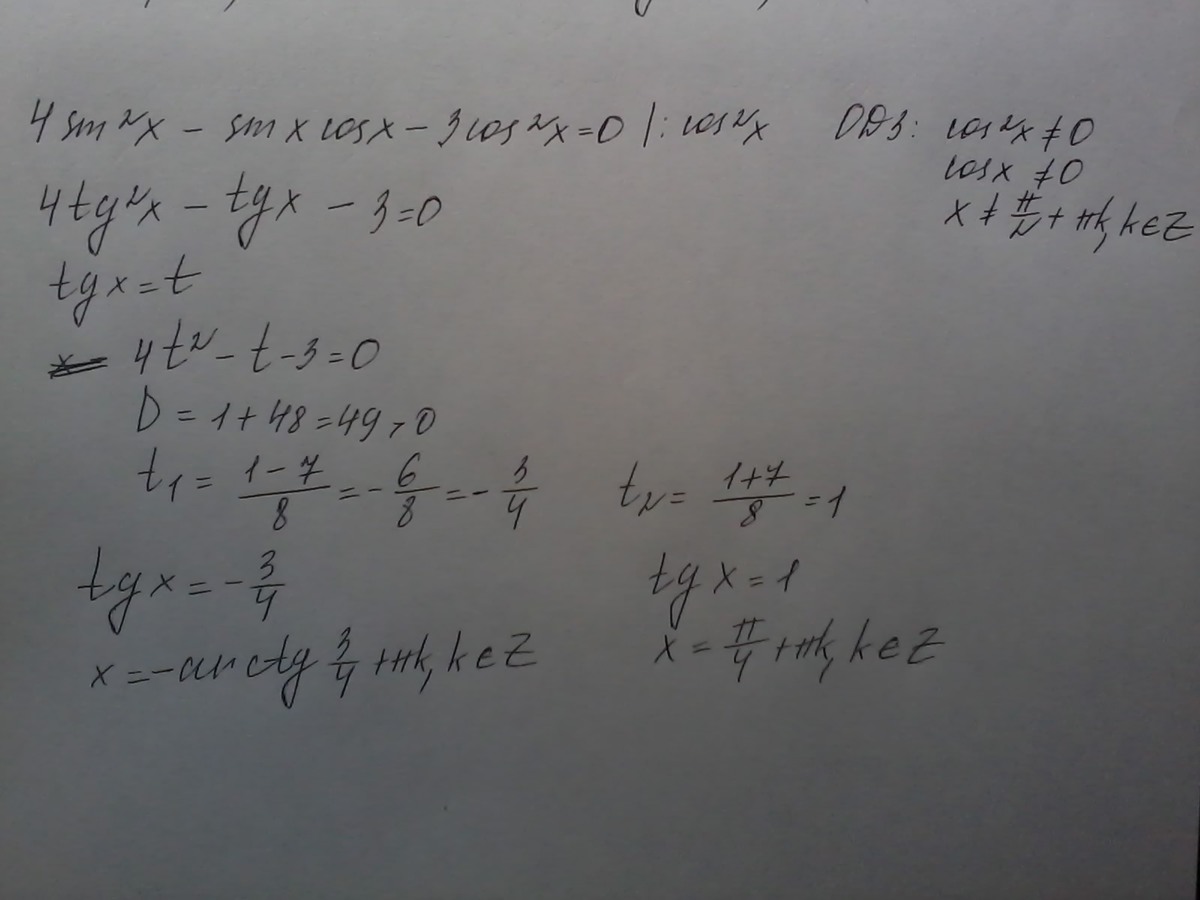 4 sin²x - sin x cos x - 3 cos²x = 0 | : cos²x ОДЗ: cos²x ≠ 0
cos x ≠ 0
4 tg²x - tg x - 3 = 0 x ≠ π/2 + πk, k ∈ Z
tg x = t
4t² - t - 3 = 0
D = 1 + 48 = 49 > 0
t₁ = (1 - 7)/8 = - 6/8 = - 3/4 t₂ = (1 + 7)/8 = 1
tg x = - 3/4 tg x = 1
x = - arctg 3/4 + πk, k ∈ Z x = π/4 + πk, k ∈ Z